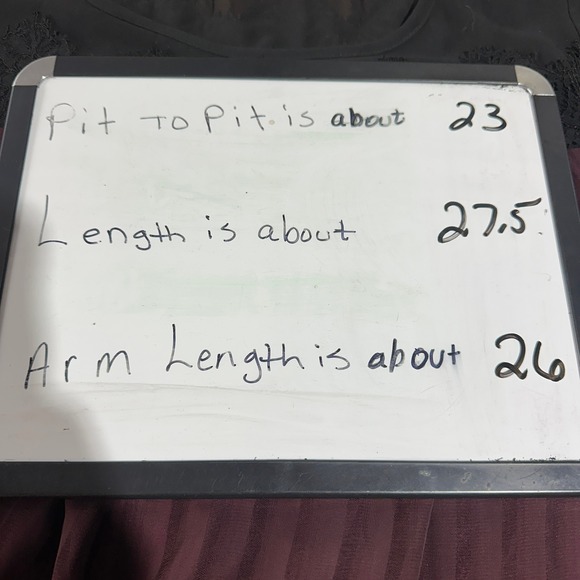 Pit To Pit is about 23
Length is about 27.5
Arm Length is about 26